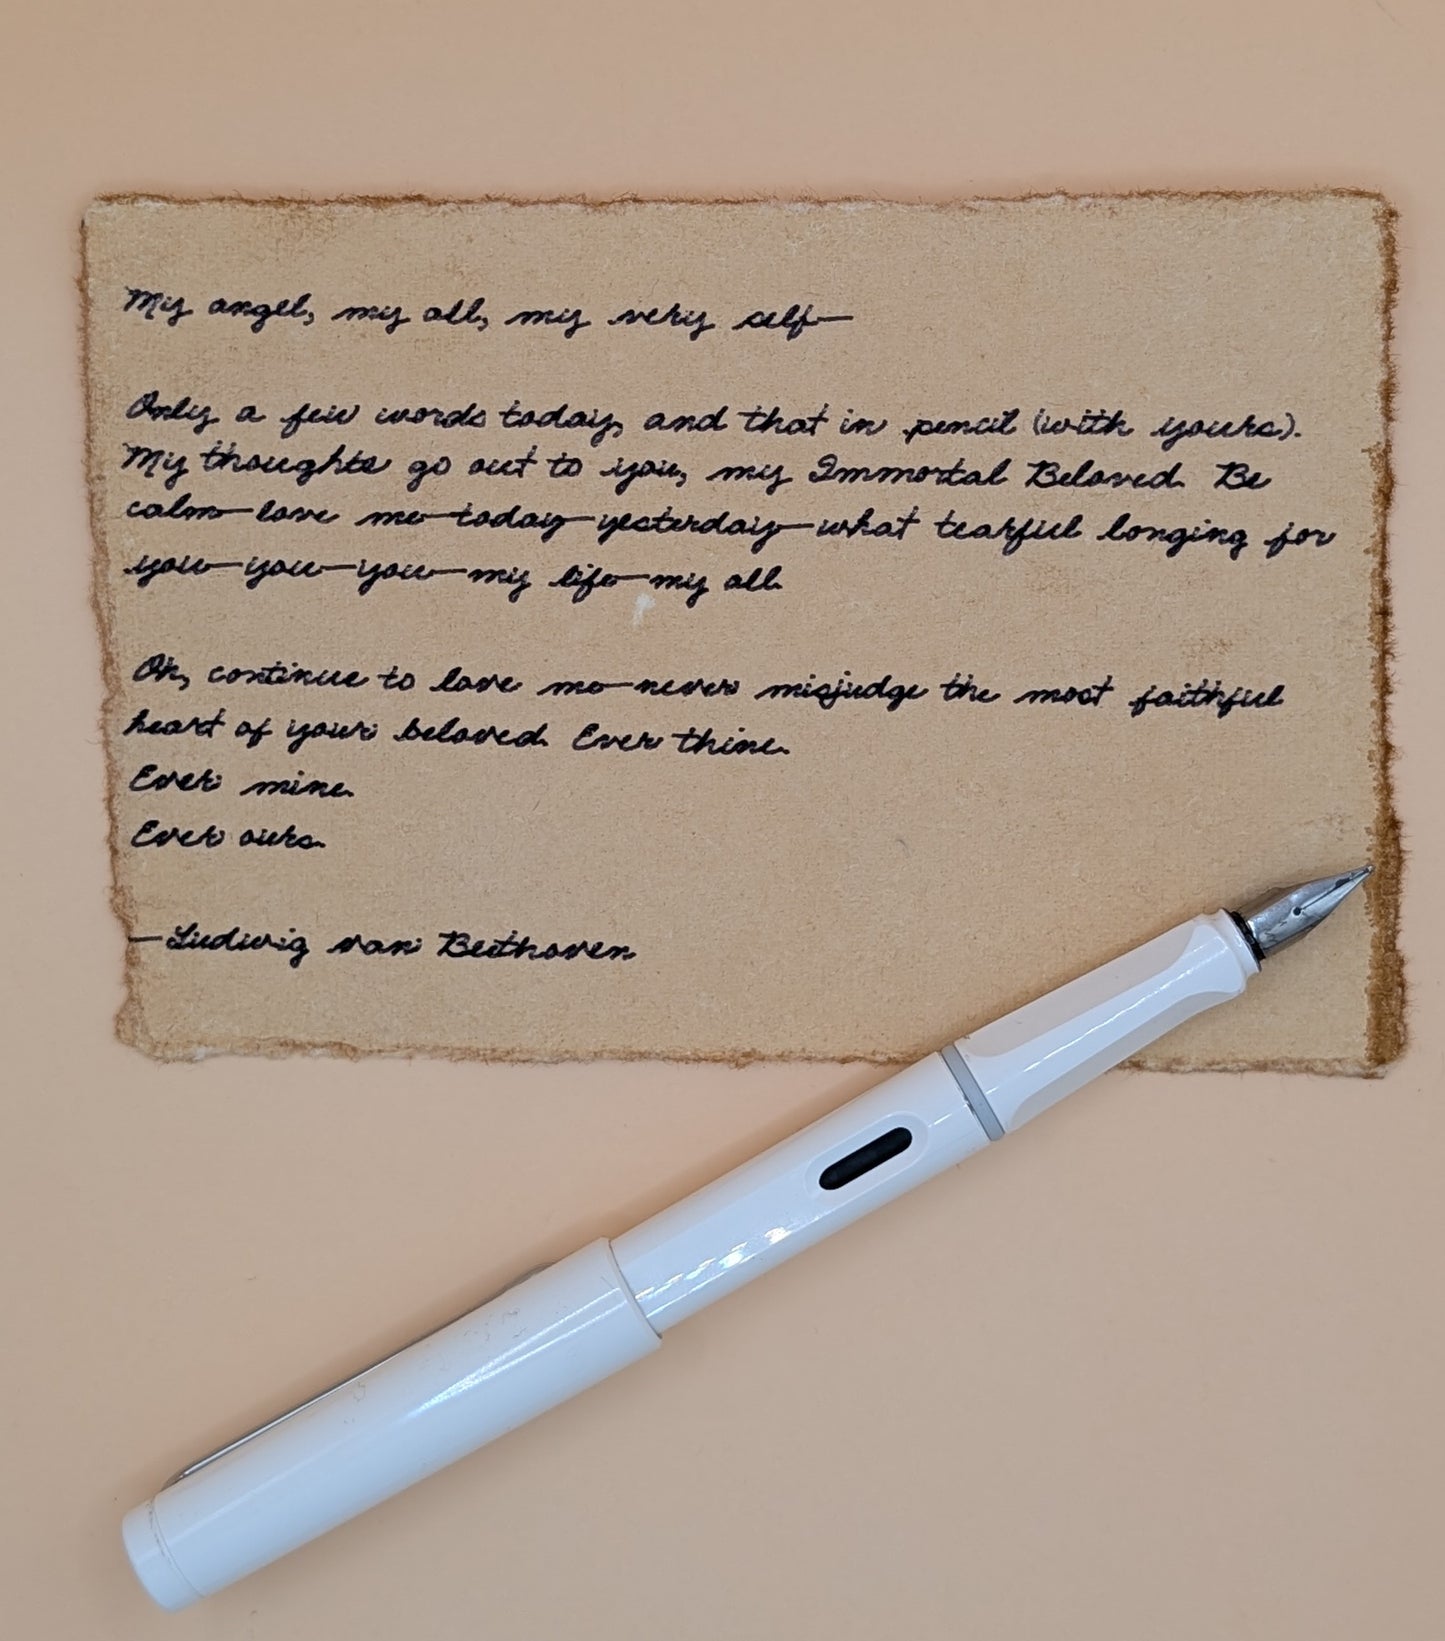 My angel, my all, my very self—
Only a few words today, and that in pencil (with yours).
My thoughts go out to you, my Immortal Beloved. Be
calm—love me—today—yesterday—what tearful longing for
you—you—you—my life—my all.
Oh, continue to love me—never misjudge the most faithful
heart of your beloved. Ever thine.
Ever mine.
Ever ours.
—Ludwig van Beethoven